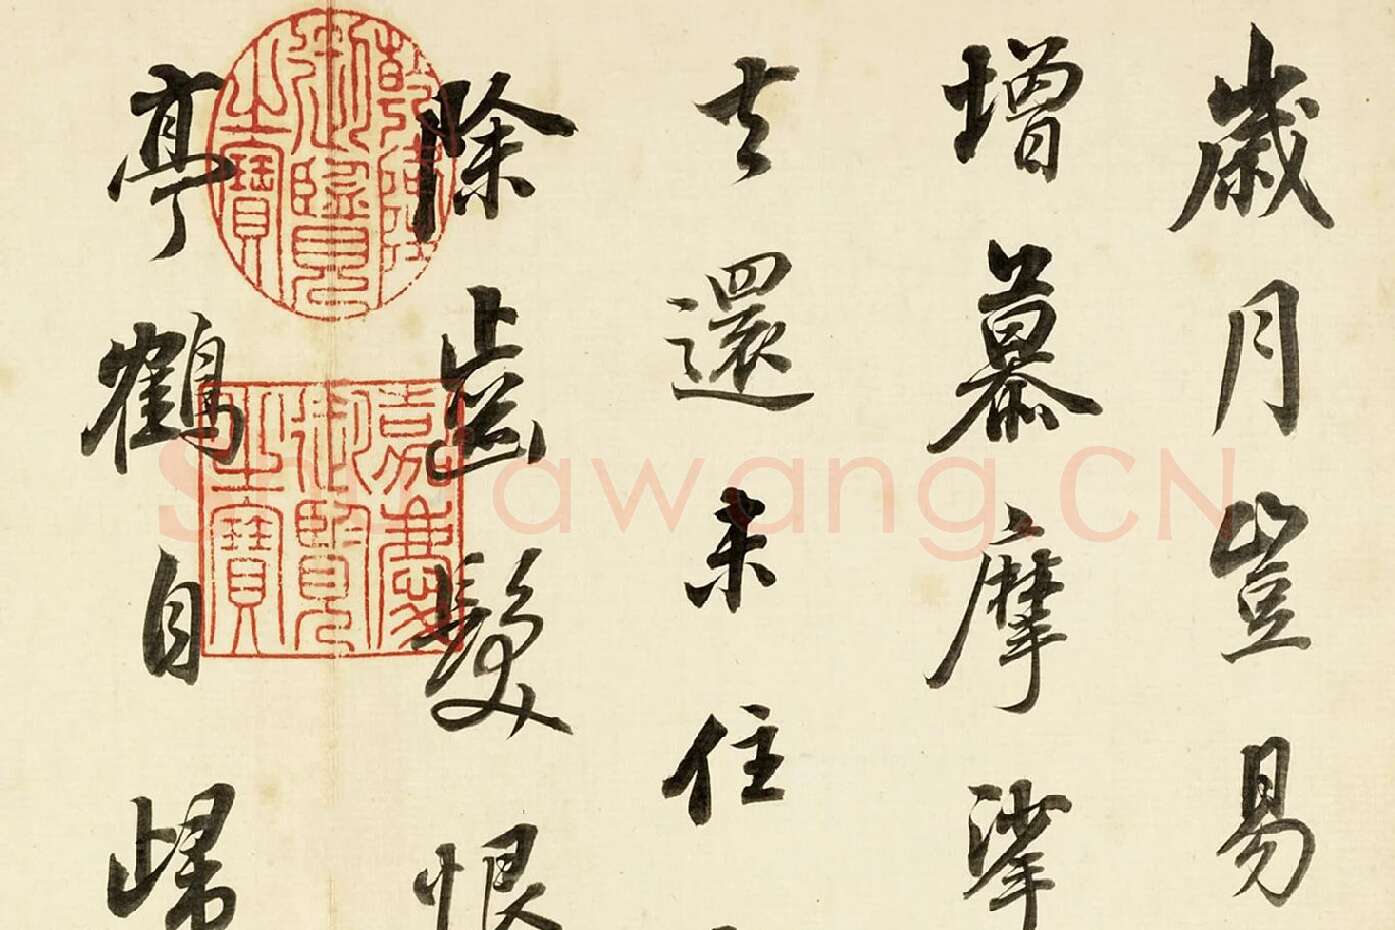 歲月豈易
增慕摩挲
去還来住
除齒髮恨
亭鶴自歸
乾隆御覽之寶
嘉慶御覽之寶
Sanawang.CN